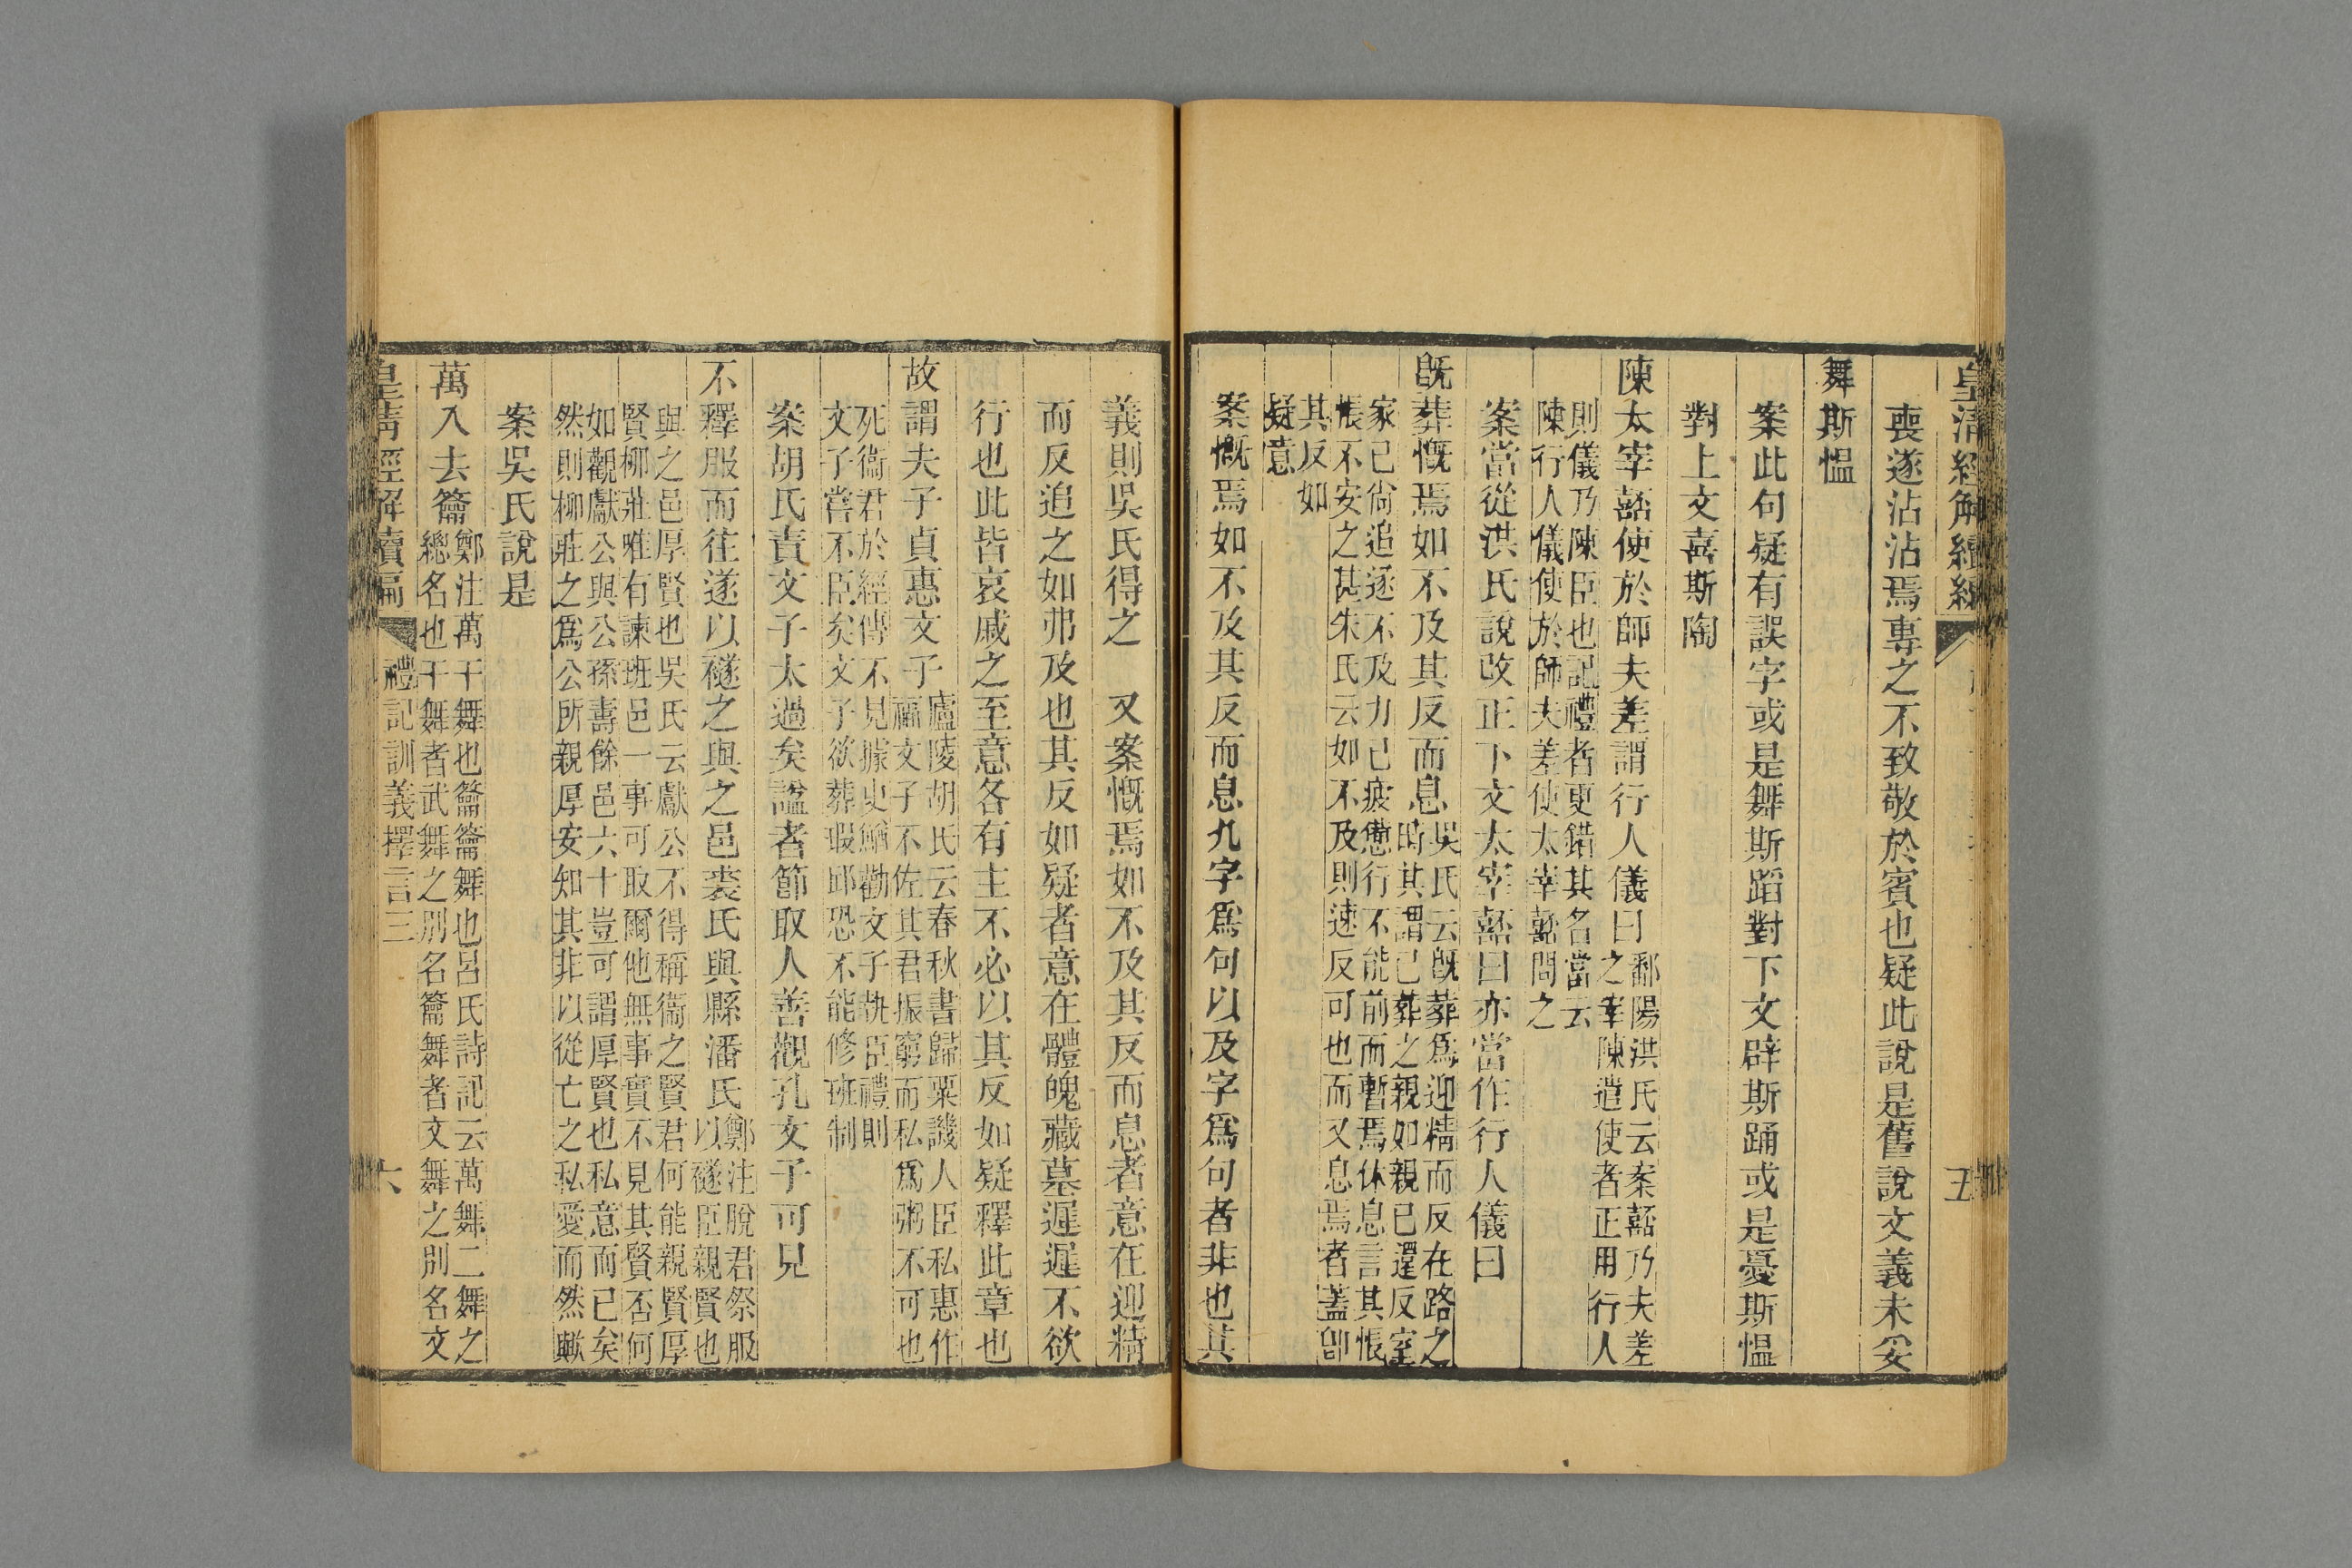 皇清經解續編
五
喪遂沾沾焉專之不致敬於賓也疑此說是舊說文義未妥
舞斯慍
案此句疑有誤字或是舞斯蹈對下文辟斯踊或是憂斯慍
對上文喜斯陶
陳太宰嚭使於師夫差謂行人儀曰
鄱陽洪氏云案嚭乃夫差
之宰陳遣使者正用行人
則儀乃陳臣也記禮者更錯其名當云
陳行人儀使於師夫差使太宰嚭問之
案當從洪氏說改正下文太宰嚭曰亦當作行人儀曰
既葬慨焉如不及其反而息
吳氏云既葬爲迎精而反在路之
時其謂已葬之親如親已還反室
家已尚追逐不及力已疲憊行不能前而暫焉休息言其悵
悵不安之甚朱氏云如不及則速反可也而又息焉者蓋卽
其反如
疑意
案慨焉如不及其反而息九字爲句以及字爲句者非也其
義則吳氏得之　又案慨焉如不及其反而息者意在迎精
而反追之如弗及也其反如疑者意在體魄藏墓遲遲不欲
行也此皆哀戚之至意各有主不必以其反如疑釋此章也
故謂夫子貞惠文子
廬陵胡氏云春秋書歸粟譏人臣私惠作
福文子不佐其君振窮而私爲粥不可也
死衞君於經傳不見據史鰌勸文子執臣禮則
文子嘗不臣矣文子欲葬瑕邱恐不能修班制
案胡氏責文子太過矣諡者節取人善觀孔文子可見
不釋服而往遂以襚之與之邑裘氏與縣潘氏
鄭注脫君祭服
以襚臣親賢也
與之邑厚賢也吳氏云獻公不得稱衞之賢君何能親賢厚
賢柳莊雖有諫班邑一事可取爾他無事實不見其賢否何
如觀獻公與公孫壽餘邑六十豈可謂厚賢也私意而已矣
然則柳莊之爲公所親厚安知其非以從亡之私愛而然歟
案吳氏說是
萬入去籥
鄭注萬干舞也籥籥舞也呂氏詩記云萬舞二舞之
總名也干舞者武舞之別名籥舞者文舞之別名文
皇清經解續編
禮記訓義擇言三
六